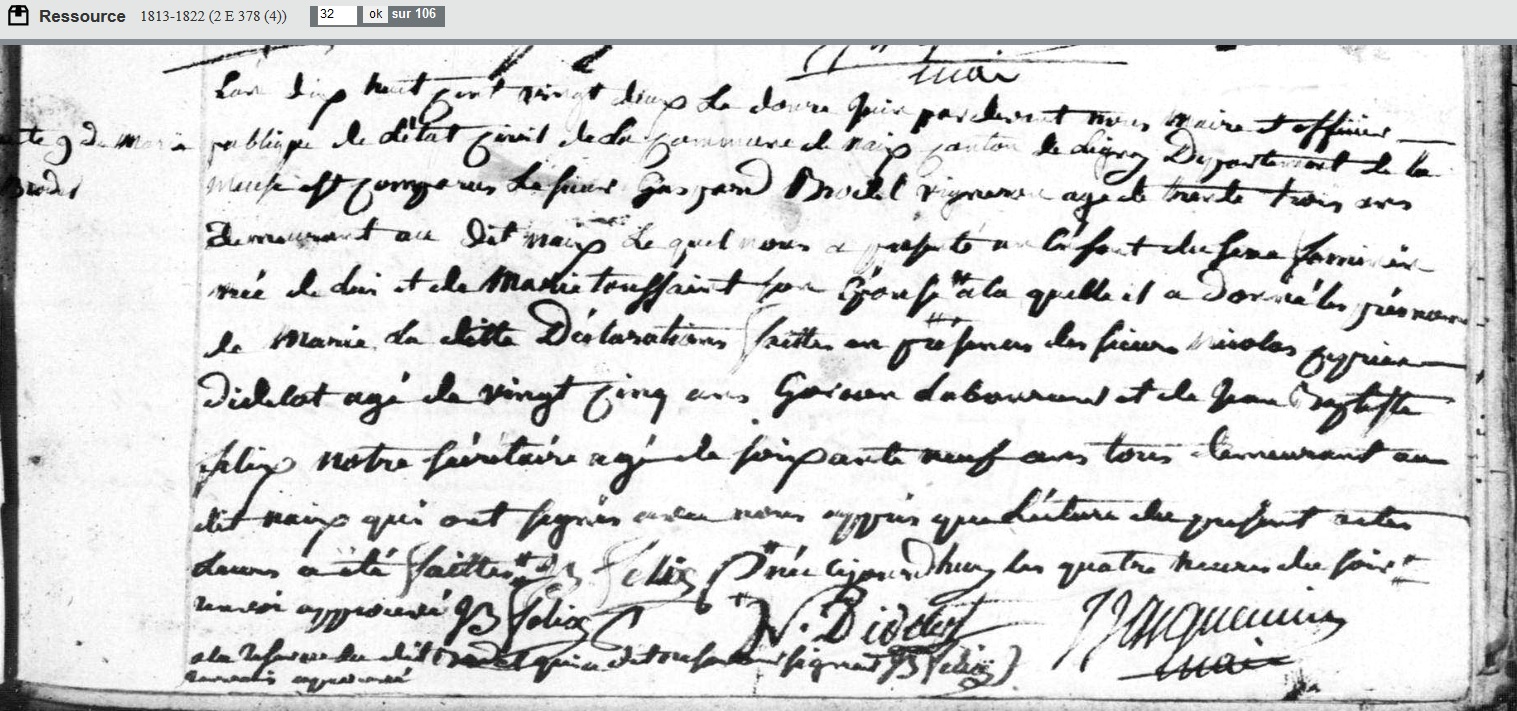 Ressource 1813-1822 (2 E 378 (4)) 32 ok sur 106
maire
L'an dix huit cent vingt deux le douze juin pardevant nous Maire et officier
acte 9 de Marie
publique de l'état civil de la commune de naix canton de Ligny Département de la
Brodel
Meuse est comparus le sieur Gaspard Brodel vigneron age de trente trois ans
Demeurant au dit naix Le quel nous a présenté un enfant du sexe feminin
née de lui et de Marie toussaint son Epouse a la quelle il a donné les prénoms
de Marie La ditte Déclarations faittes en présences des sieurs Nicolas cyprien
Didelot agé de vingt cinq ans Garcon Laboureur et de Jean Baptiste
felix notre sécrétaire agé de soixante neuf ans tous demeurant au
dit naix qui ont signés avec nous apprés que Lécture du présent actes
Leurs a été faittes JB felix née aujourdhuy les quatre heures du soir
renvoi approuvé JB felix N. Didelot Jacquemin
maire
a la réserve du dit Brodel qui a dit ne savoir signer JB felix
renvois approuvé